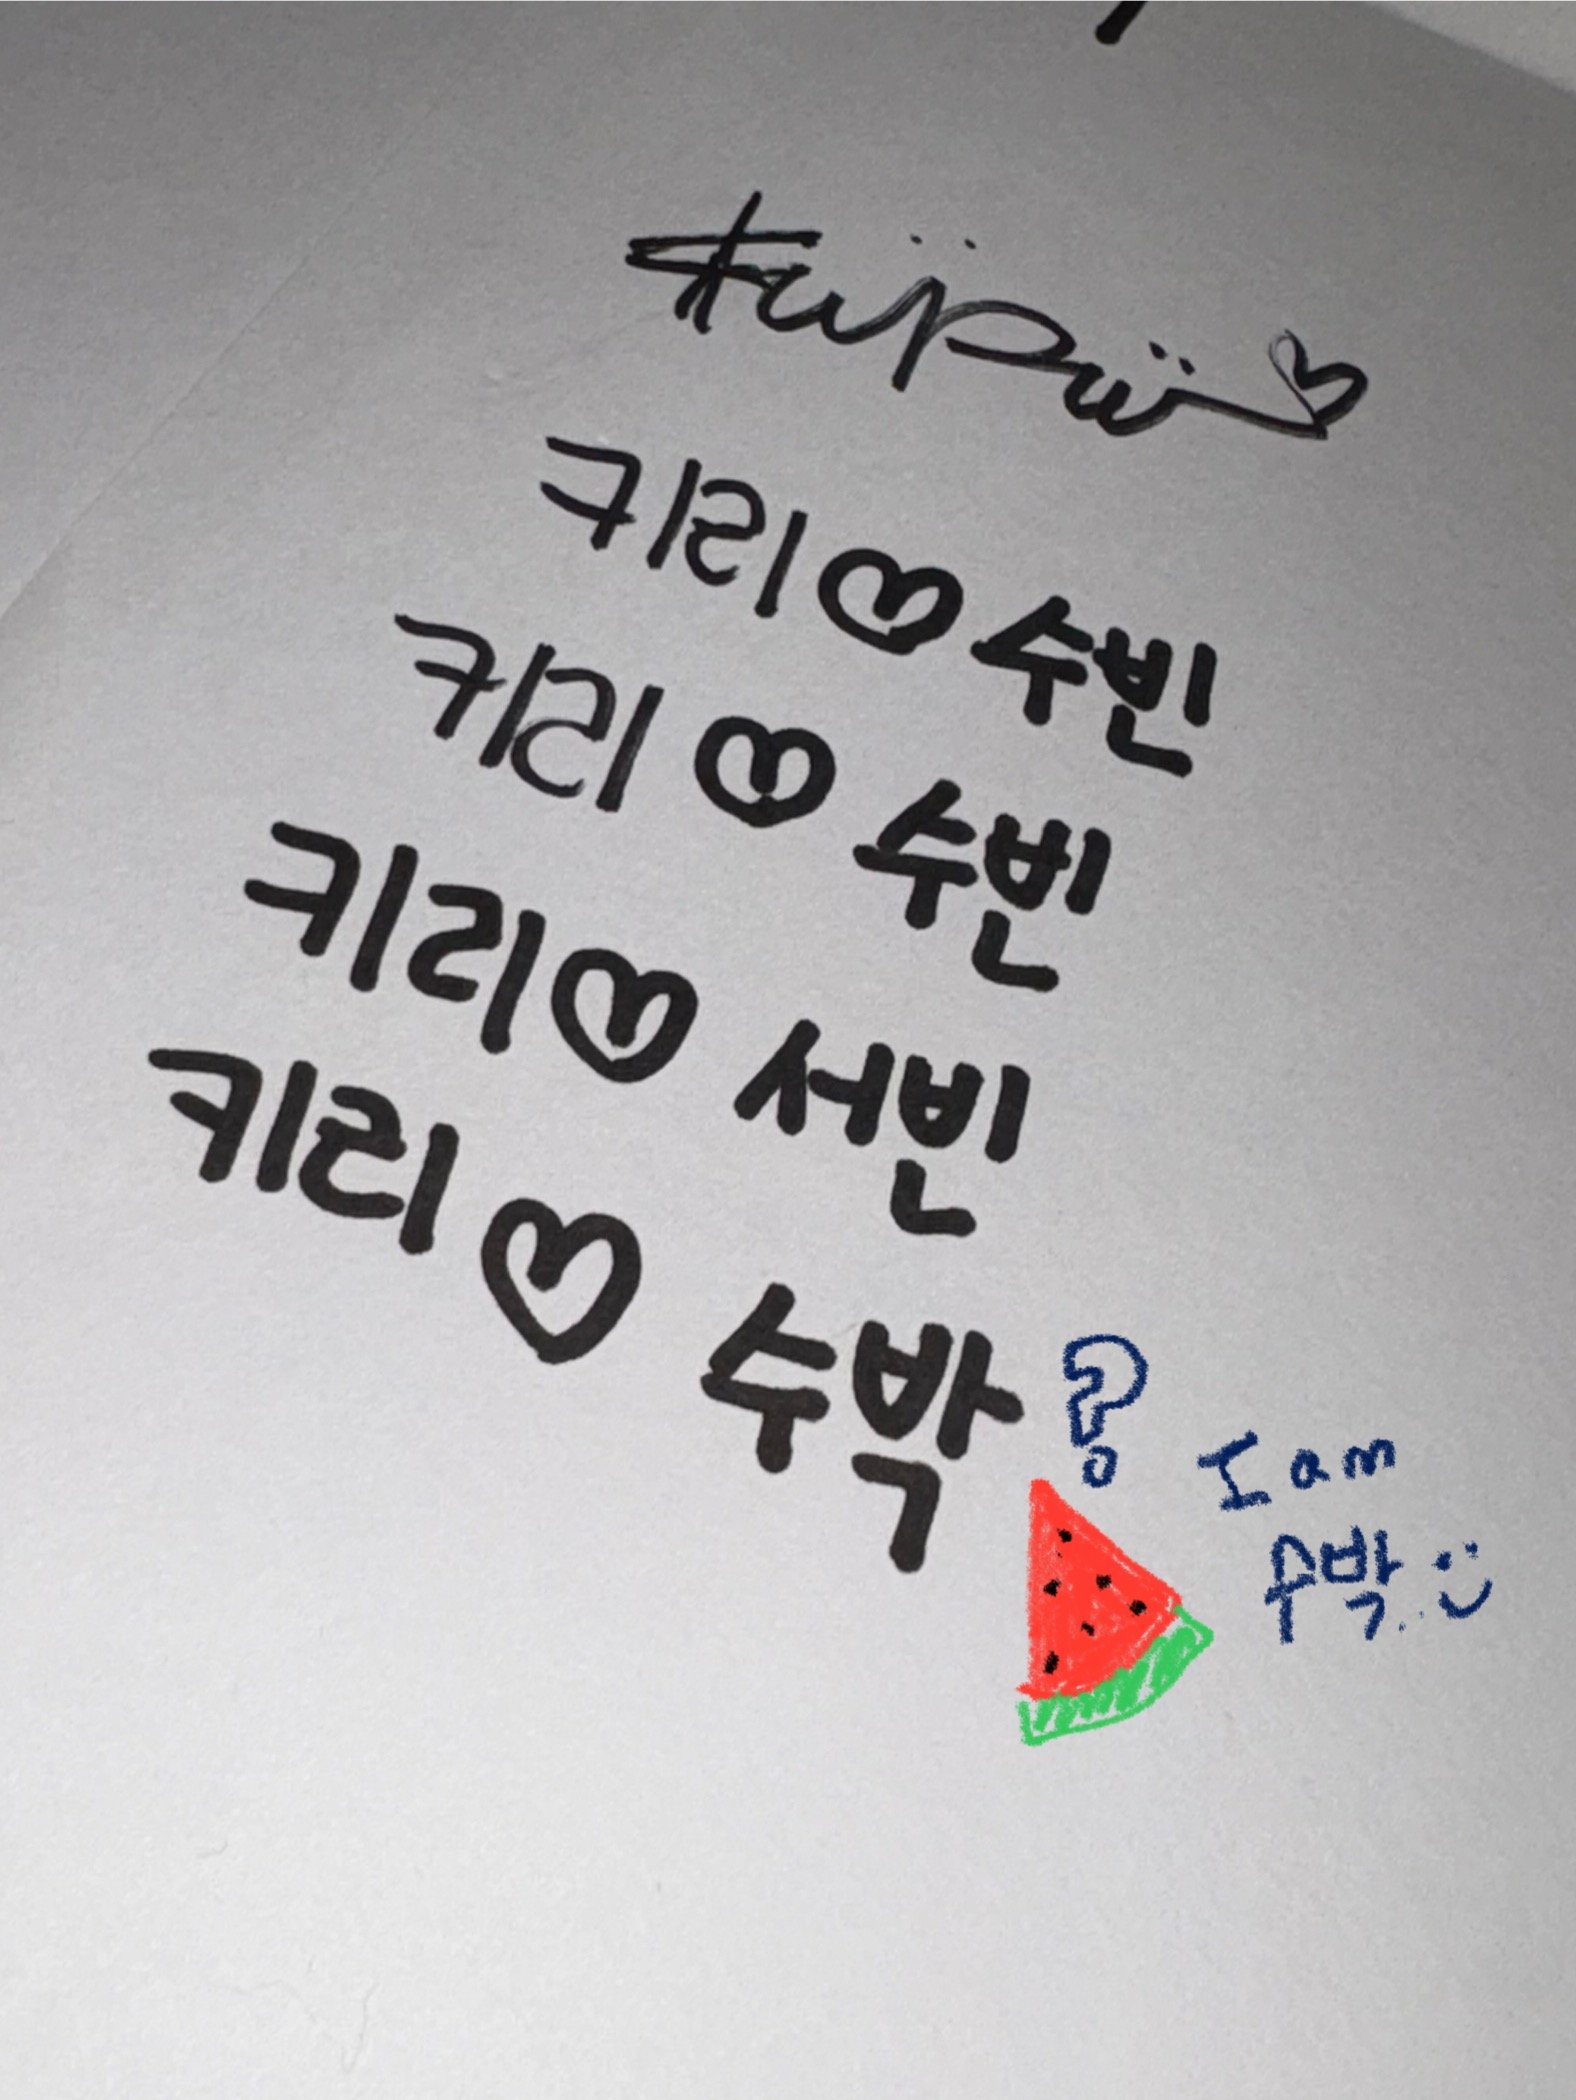 키리♡수빈
키리♡수빈
키리♡서빈
키리♡수박?
I am
수박..:)